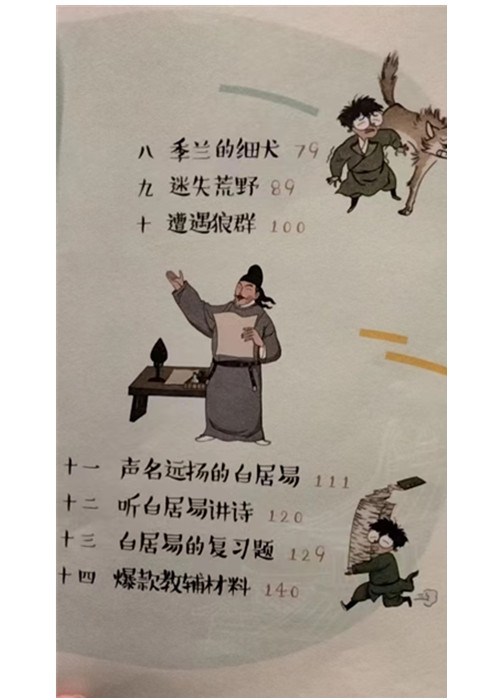 八 季兰的细犬 79
九 迷失荒野 89
十 遭遇狼群 100
十一 声名远扬的白居易 111
十二 听白居易讲诗 120
十三 白居易的复习题 129
十四 爆款教辅材料 140